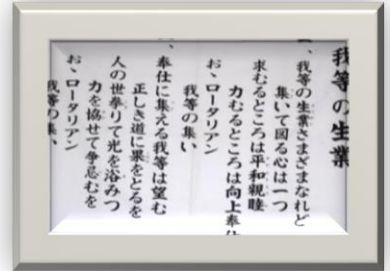 我等の生業
一、我等の生業さまざまなれど
集いて図る心は一つ
求むるところは平和親睦
力むるところは向上奉仕
おゝロータリアン
我等の集い
、奉仕に集える我等は望む
正しき道に果をとるを
人の世挙りて光を浴みつ
力を協せて争忌むを
おゝロータリアン
我等の集い